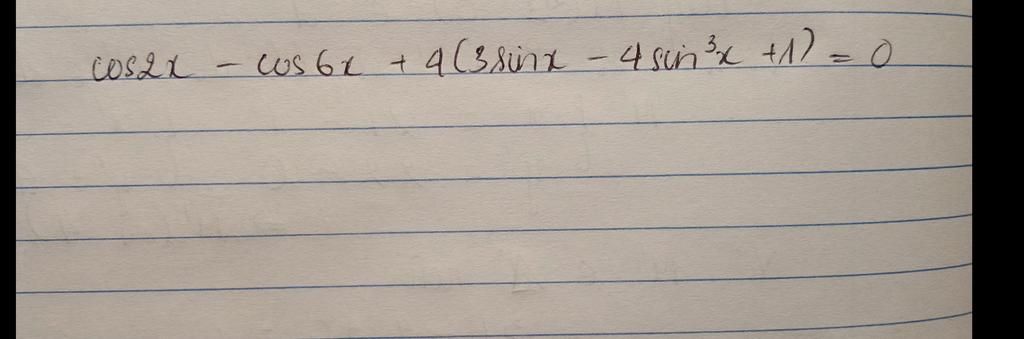 cos2x - cos6x + 4(3sinx - 4sin³x + 1) = 0